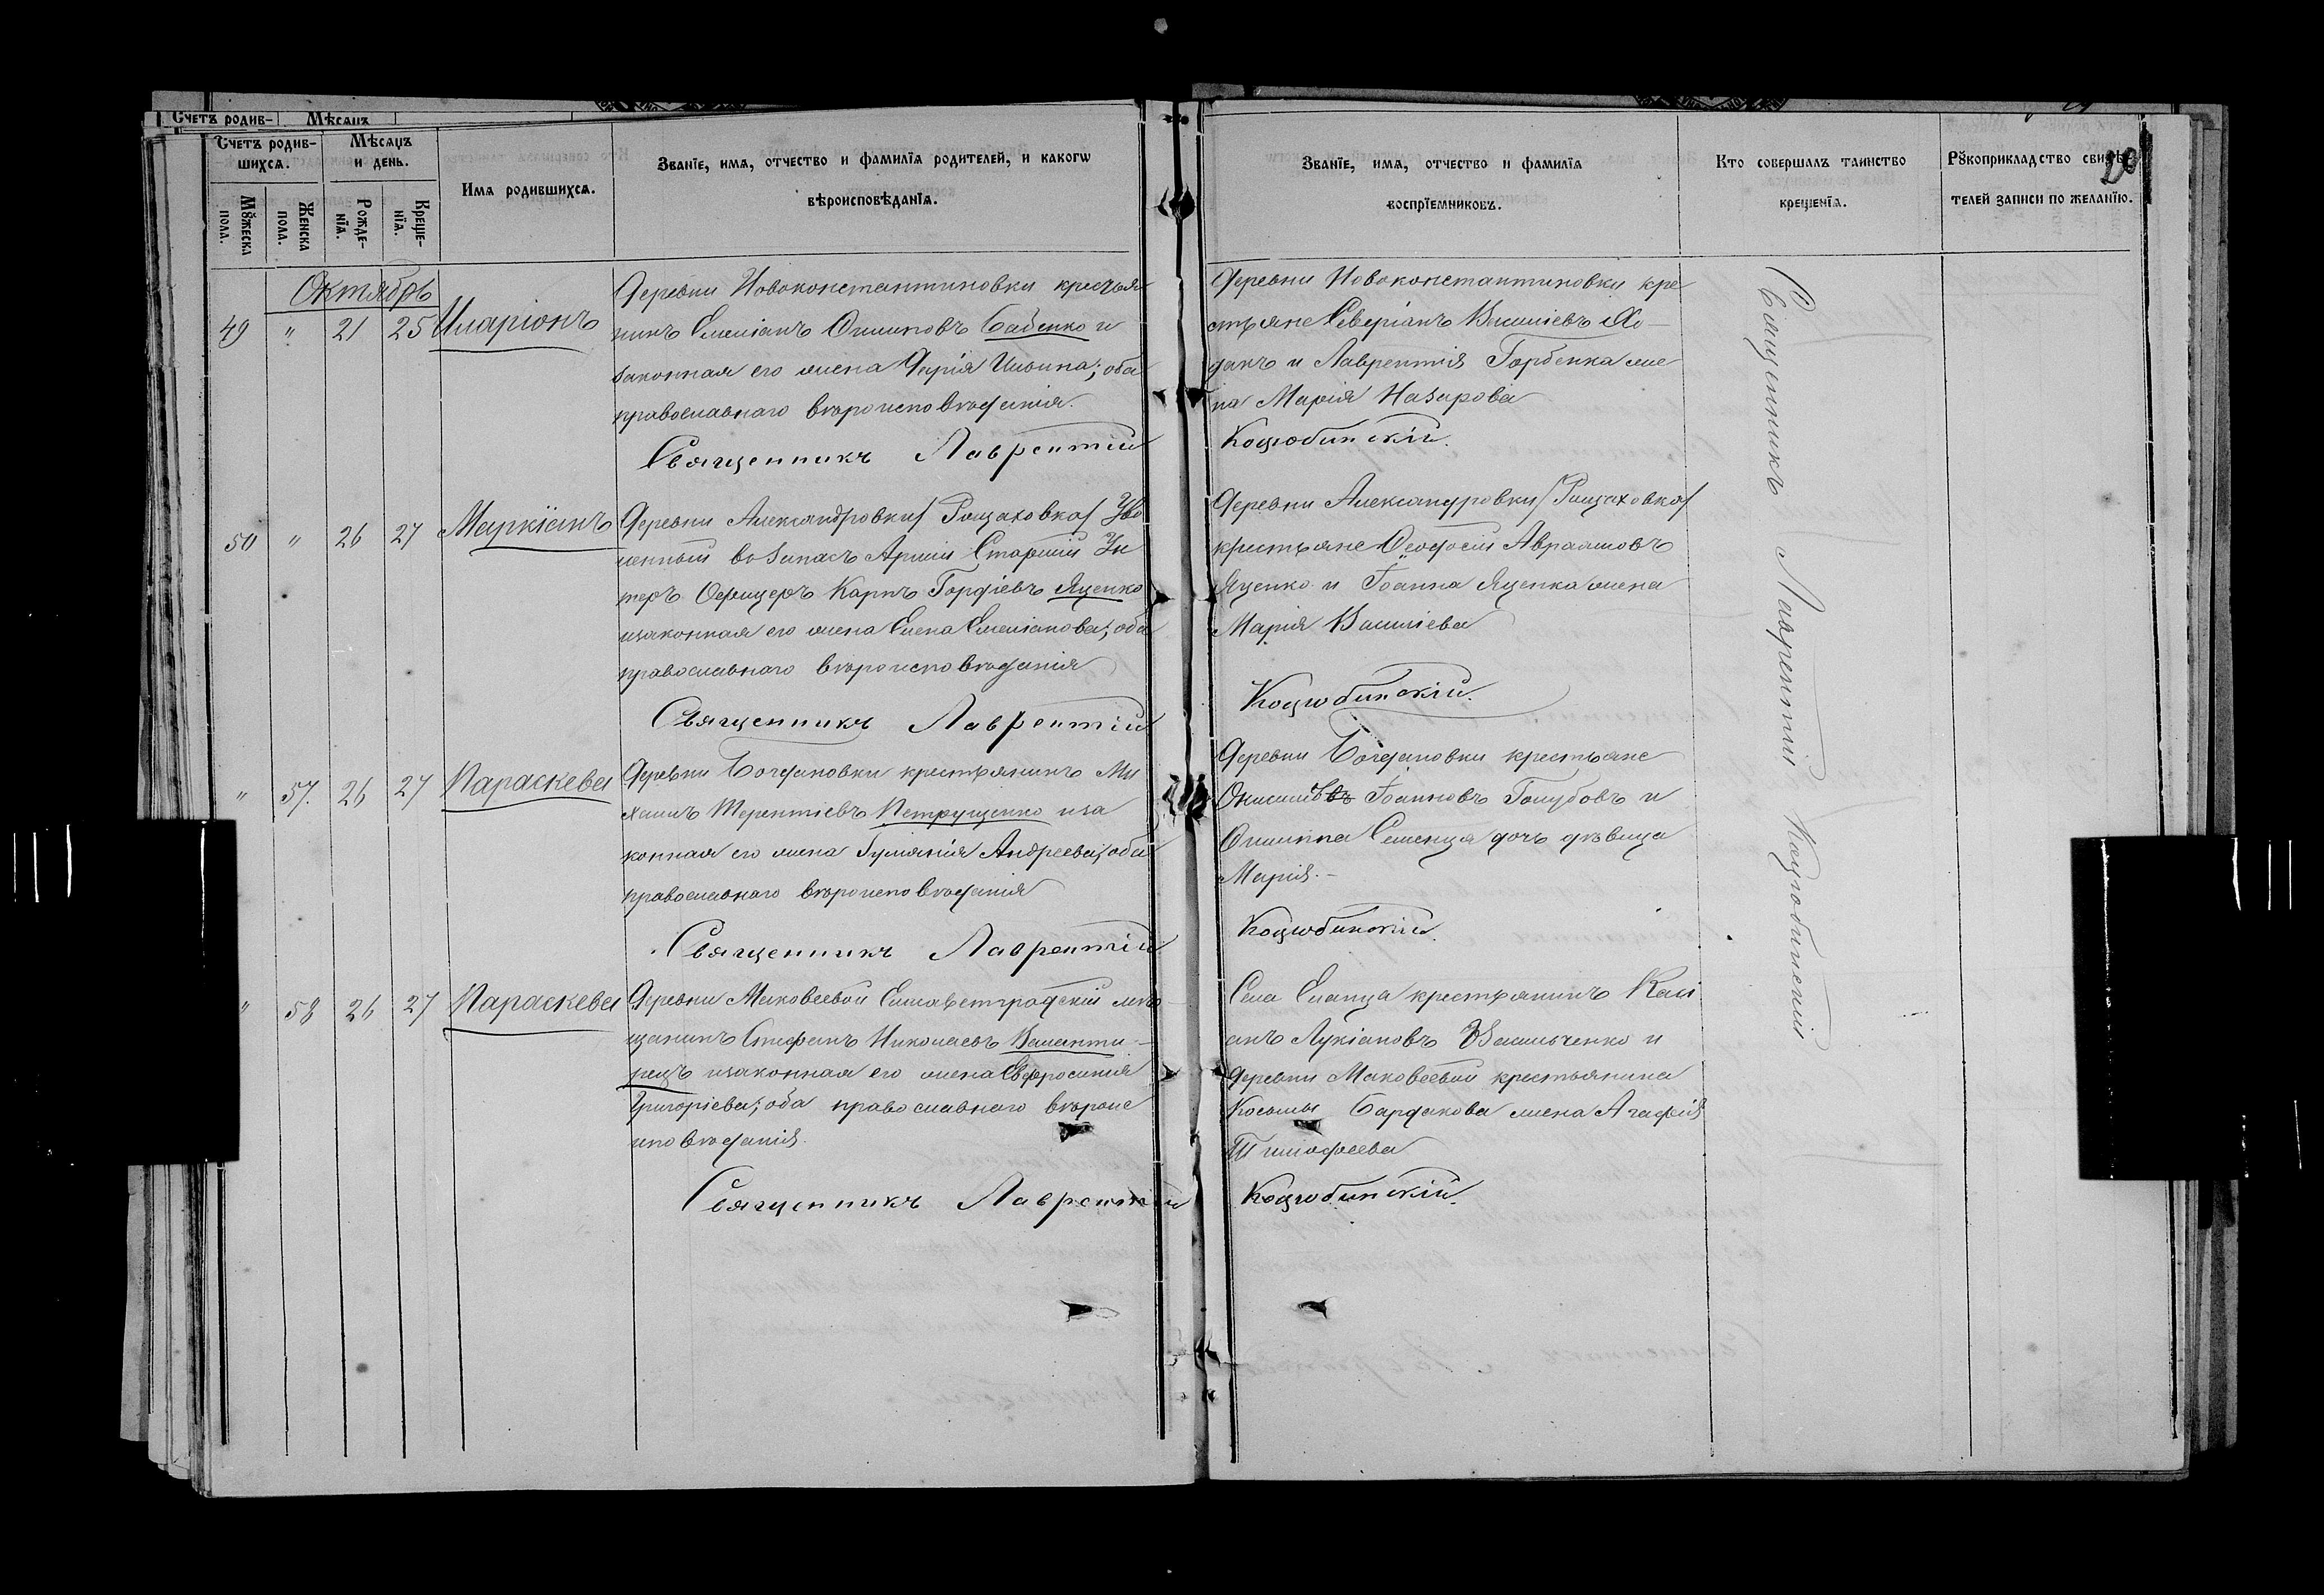 Счетъ родив- Мѣсяцъ
Счетъ родив-
шихся.
Мѣсяцъ
и день.
Мꙋжеска
пола.
Женска
пола.
Рожде-
нїя.
Креще-
нїя.
Имя родившихся.
Званїе, имя, отчество и фамилїя родителей, и какогѡ
вѣроисповѣданїя.
Званїе, имя, отчество и фамилїя
воспрїемниковъ.
Кто совершалъ таинство
крещенїя.
Рꙋкоприкладство свидѣ-
телей записи по желанїю.
20
Октябрь
49 " 21 25 Иларіонъ
Деревни Новоконстантиновки крестья
нинъ Емеліанъ Филиповъ Бабенко и
законная его жена Дарія Ильина; оба
православнаго вѣроисповѣданія.
Священникъ Лаврентій
Деревни Новоконстантиновки кре
стьяне Северіанъ Василіевъ Хо-
данъ и Лаврентія Горбенка же
на Марія Назарова
Коцюбинскій.
50 " 26 27 Маркіанъ
Деревни Александровки/ Рощаховка/ Уво
ленный въ запасъ Арміи Старшій Ун
теръ Офицеръ Карпъ Гордіевъ Яценко
изаконная его жена Елена Емеліанова; оба
православнаго вѣроисповѣданія
Священникъ Лаврентій
Деревни Александровки/ Рощаховка/
крестьяне Ѳеодосій Авраамовъ
Яценко и Іоанна Яценка жена
Марія Василіева
Коцюбинскій.
" 57. 26 27 Параскева
Деревни Богдановки крестьянинъ Ми
хаилъ Терентіевъ Петрущенко иза
конная его жена Гуліанія Андреева; оба
православнаго вѣроисповѣданія
Священникъ Лаврентій
Деревни Богдановки крестьяне
Іоанновъ Голубовъ и
Филиппа Семенца дочь дѣвица
Марія.-
Коцюбинскій.
" 58 26 27 Параскева
Деревни Маковеевой Елисаветградскій мѣ-
щанинъ Стефанъ Николаевъ Валанти-
рецъ изаконная его жена Евфросинія
Григоріева; оба православнаго вѣроис
повѣданія.
Священникъ Лаврентій
Села Еланца крестьянинъ Касі
анъ Лукіановъ Васильченко и
Деревни Маковеевой крестьянина
Косьмы Бардакова жена Агафія
Тимофеева
Коцюбинскій.
Священникъ Лаврентій Коцюбинскій